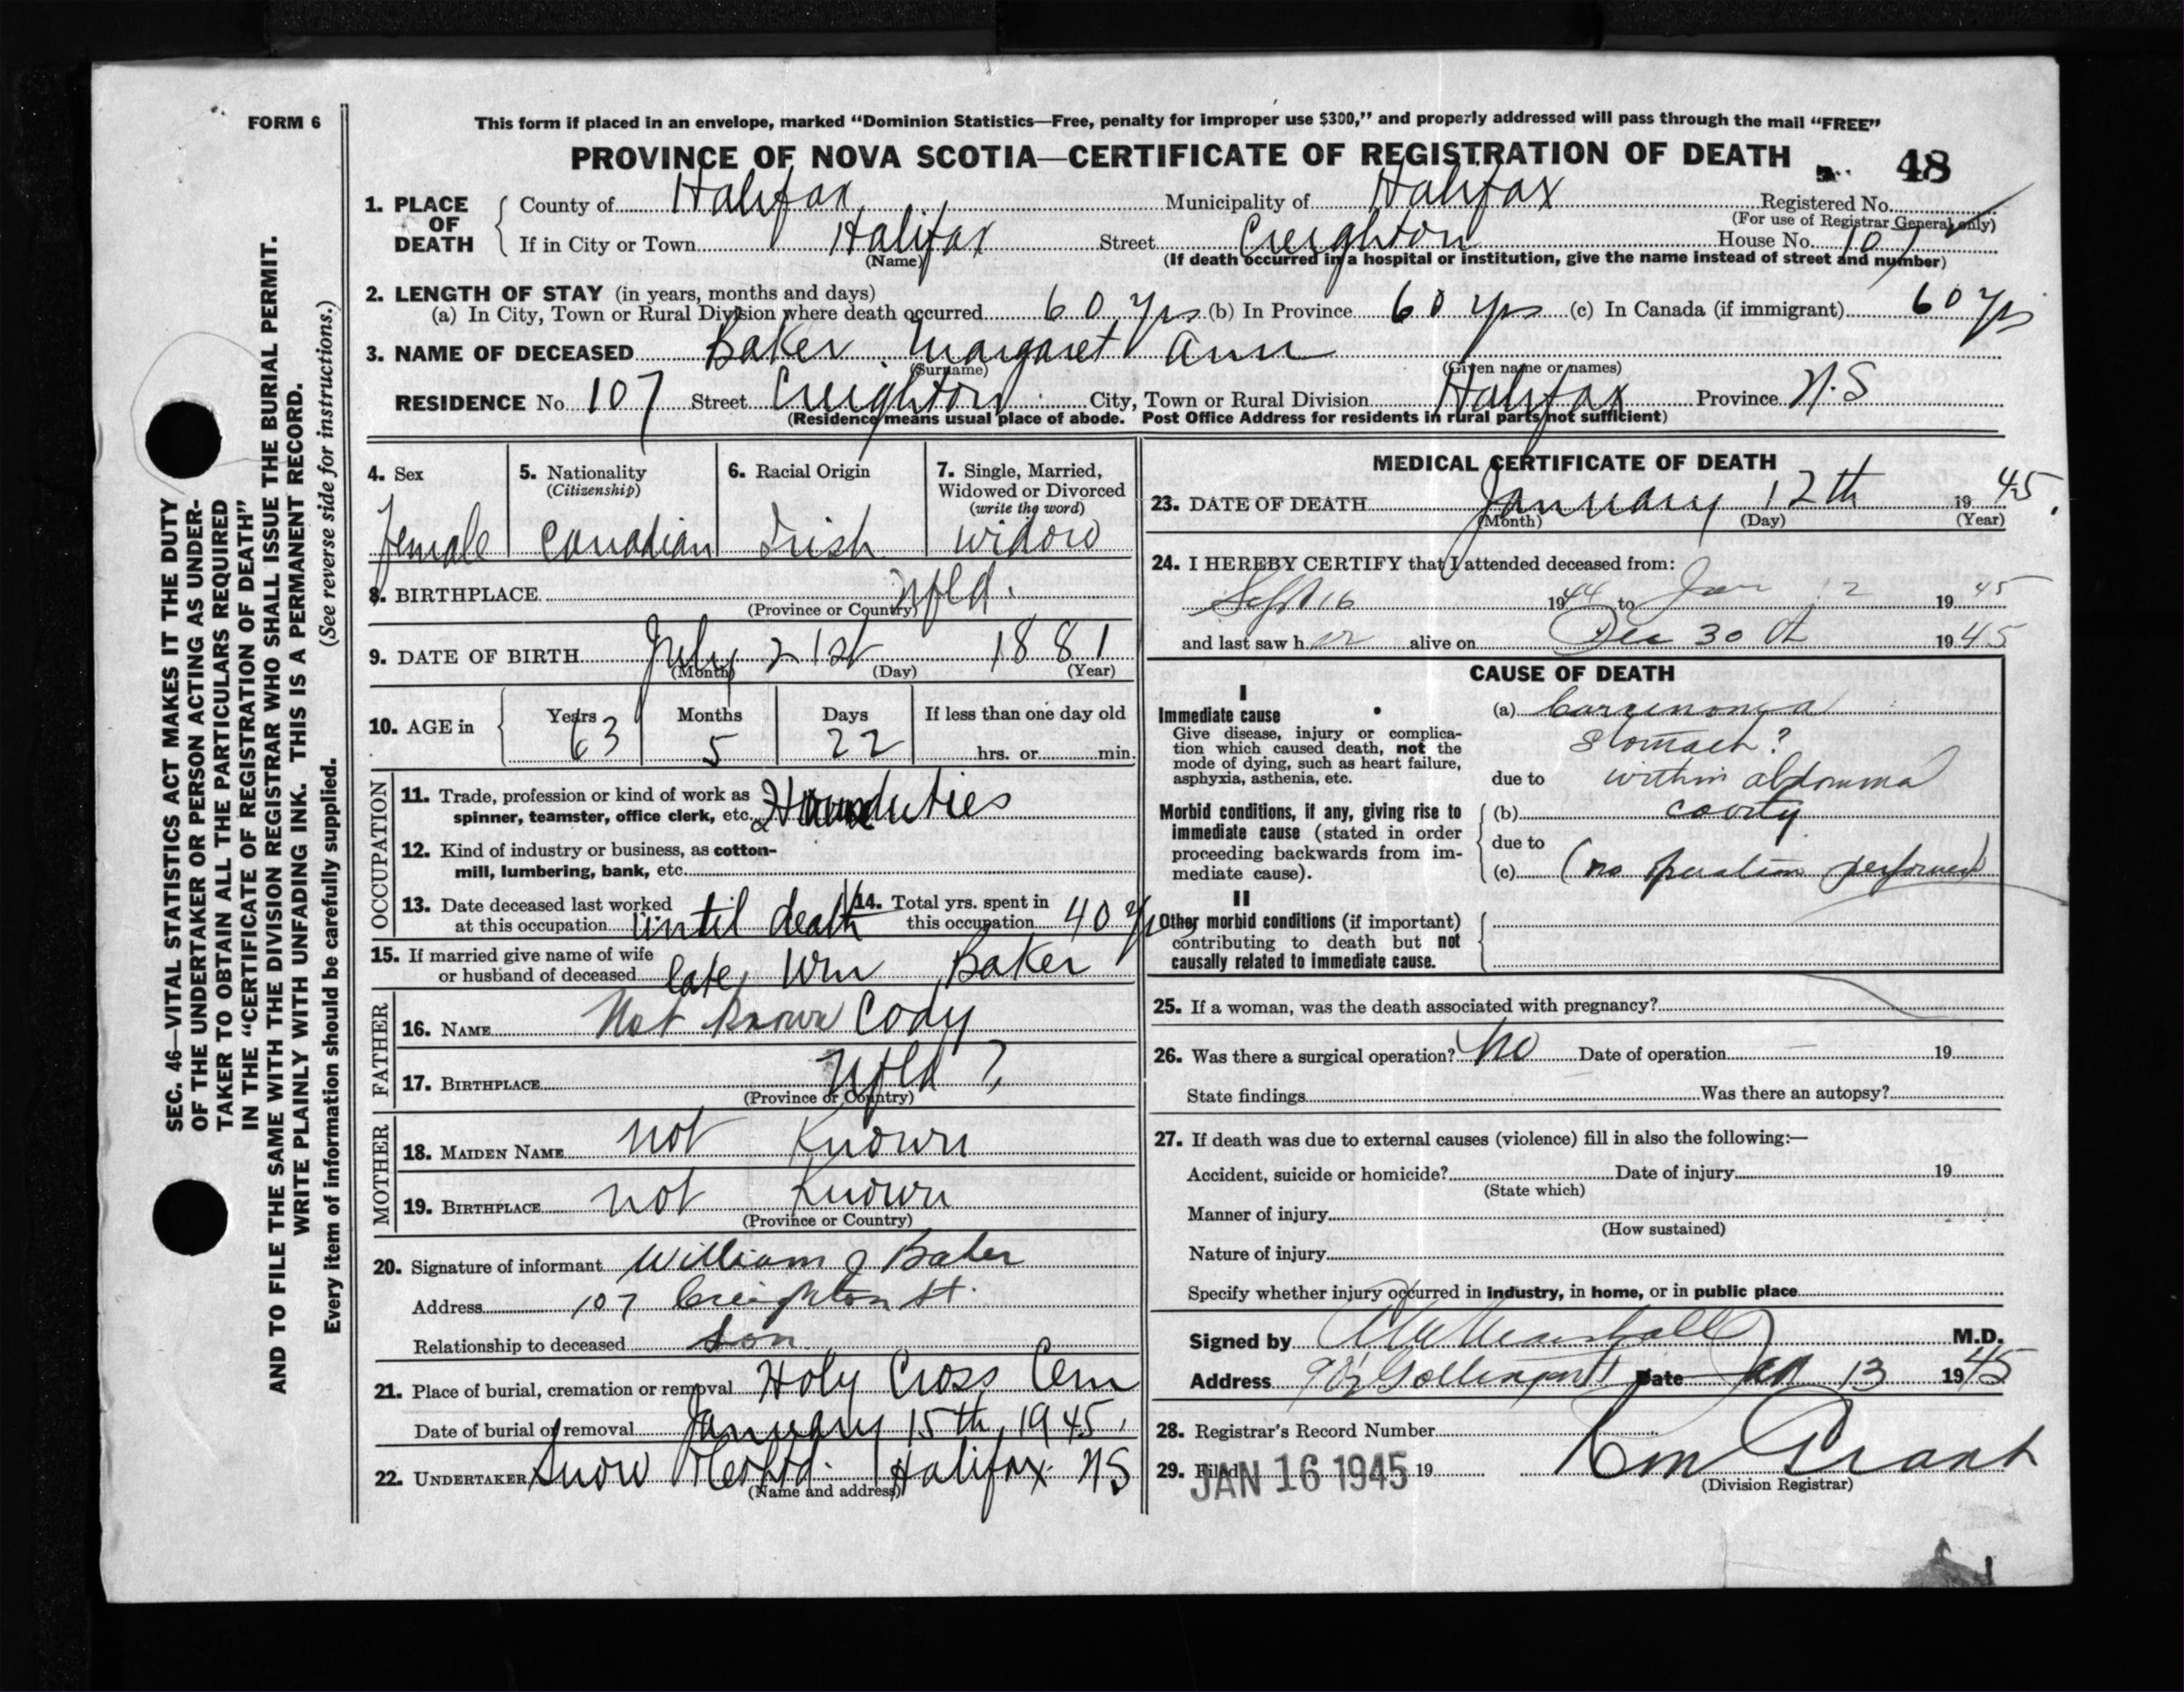 FORM 6
This form if placed in an envelope, marked “Dominion Statistics—Free, penalty for improper use $300,” and properly addressed will pass through the mail “FREE”
PROVINCE OF NOVA SCOTIA—CERTIFICATE OF REGISTRATION OF DEATH 48
1. PLACE OF DEATH
County of Halifax Municipality of Halifax Registered No.
(For use of Registrar General only)
If in City or Town Halifax Street Creighton House No. 107
(Name) (If death occurred in a hospital or institution, give the name instead of street and number)
2. LENGTH OF STAY (in years, months and days)
(a) In City, Town or Rural Division where death occurred 60 yrs (b) In Province 60 yrs (c) In Canada (if immigrant) 60 yrs
3. NAME OF DECEASED Baker Margaret Ann
(Surname) (Given name or names)
RESIDENCE No. 107 Street Creighton City, Town or Rural Division Halifax Province N.S
(Residence means usual place of abode. Post Office Address for residents in rural parts not sufficient)
4. Sex
Female
5. Nationality
(Citizenship)
Canadian
6. Racial Origin
Irish
7. Single, Married,
Widowed or Divorced
(write the word)
Widow
8. BIRTHPLACE Nfld.
(Province or Country)
9. DATE OF BIRTH July 21st 1881
(Month) (Day) (Year)
10. AGE in
Years Months Days If less than one day old
63 5 22 hrs. or min.
OCCUPATION
11. Trade, profession or kind of work as
spinner, teamster, office clerk, etc. duties
12. Kind of industry or business, as cotton-
mill, lumbering, bank, etc.
13. Date deceased last worked
at this occupation Until death
14. Total yrs. spent in
this occupation 40 yrs
15. If married give name of wife
or husband of deceased late Wm Baker
FATHER
16. NAME Not known Cody
17. BIRTHPLACE Nfld ?
(Province or Country)
MOTHER
18. MAIDEN NAME not Known
19. BIRTHPLACE not Known
(Province or Country)
20. Signature of informant William J Baker
Address 107 Creighton St.
Relationship to deceased Son
21. Place of burial, cremation or removal Holy Cross Cem
Date of burial or removal January 15th, 1945.
22. UNDERTAKER Snow Halifax NS
(Name and address)
MEDICAL CERTIFICATE OF DEATH
23. DATE OF DEATH January 12th 1945.
(Month) (Day) (Year)
24. I HEREBY CERTIFY that I attended deceased from:
Sept 16 1944 to Jan 12 1945
and last saw her alive on Dec 30th 1945
CAUSE OF DEATH
I
Immediate cause
Give disease, injury or complica-
tion which caused death, not the
mode of dying, such as heart failure,
asphyxia, asthenia, etc.
(a) Carcinonga
Stomach?
due to within abdomma
Morbid conditions, if any, giving rise to
immediate cause (stated in order
proceeding backwards from im-
mediate cause).
(b) cavity
due to
(c) (no operation performed)
II
Other morbid conditions (if important)
contributing to death but not
causally related to immediate cause.
25. If a woman, was the death associated with pregnancy?
26. Was there a surgical operation? No Date of operation — 19
State findings Was there an autopsy?
27. If death was due to external causes (violence) fill in also the following:—
Accident, suicide or homicide? Date of injury 19
(State which)
Manner of injury
(How sustained)
Nature of injury
Specify whether injury occurred in industry, in home, or in public place
Signed by Marshall M.D.
Address Date Jan 13 1945
28. Registrar's Record Number
29. Filed JAN 16 1945 19 Grant
(Division Registrar)
SEC. 46—VITAL STATISTICS ACT MAKES IT THE DUTY
OF THE UNDERTAKER OR PERSON ACTING AS UNDER-
TAKER TO OBTAIN ALL THE PARTICULARS REQUIRED
IN THE “CERTIFICATE OF REGISTRATION OF DEATH”
AND TO FILE THE SAME WITH THE DIVISION REGISTRAR WHO SHALL ISSUE THE BURIAL PERMIT.
WRITE PLAINLY WITH UNFADING INK. THIS IS A PERMANENT RECORD.
Every item of information should be carefully supplied. (See reverse side for instructions.)